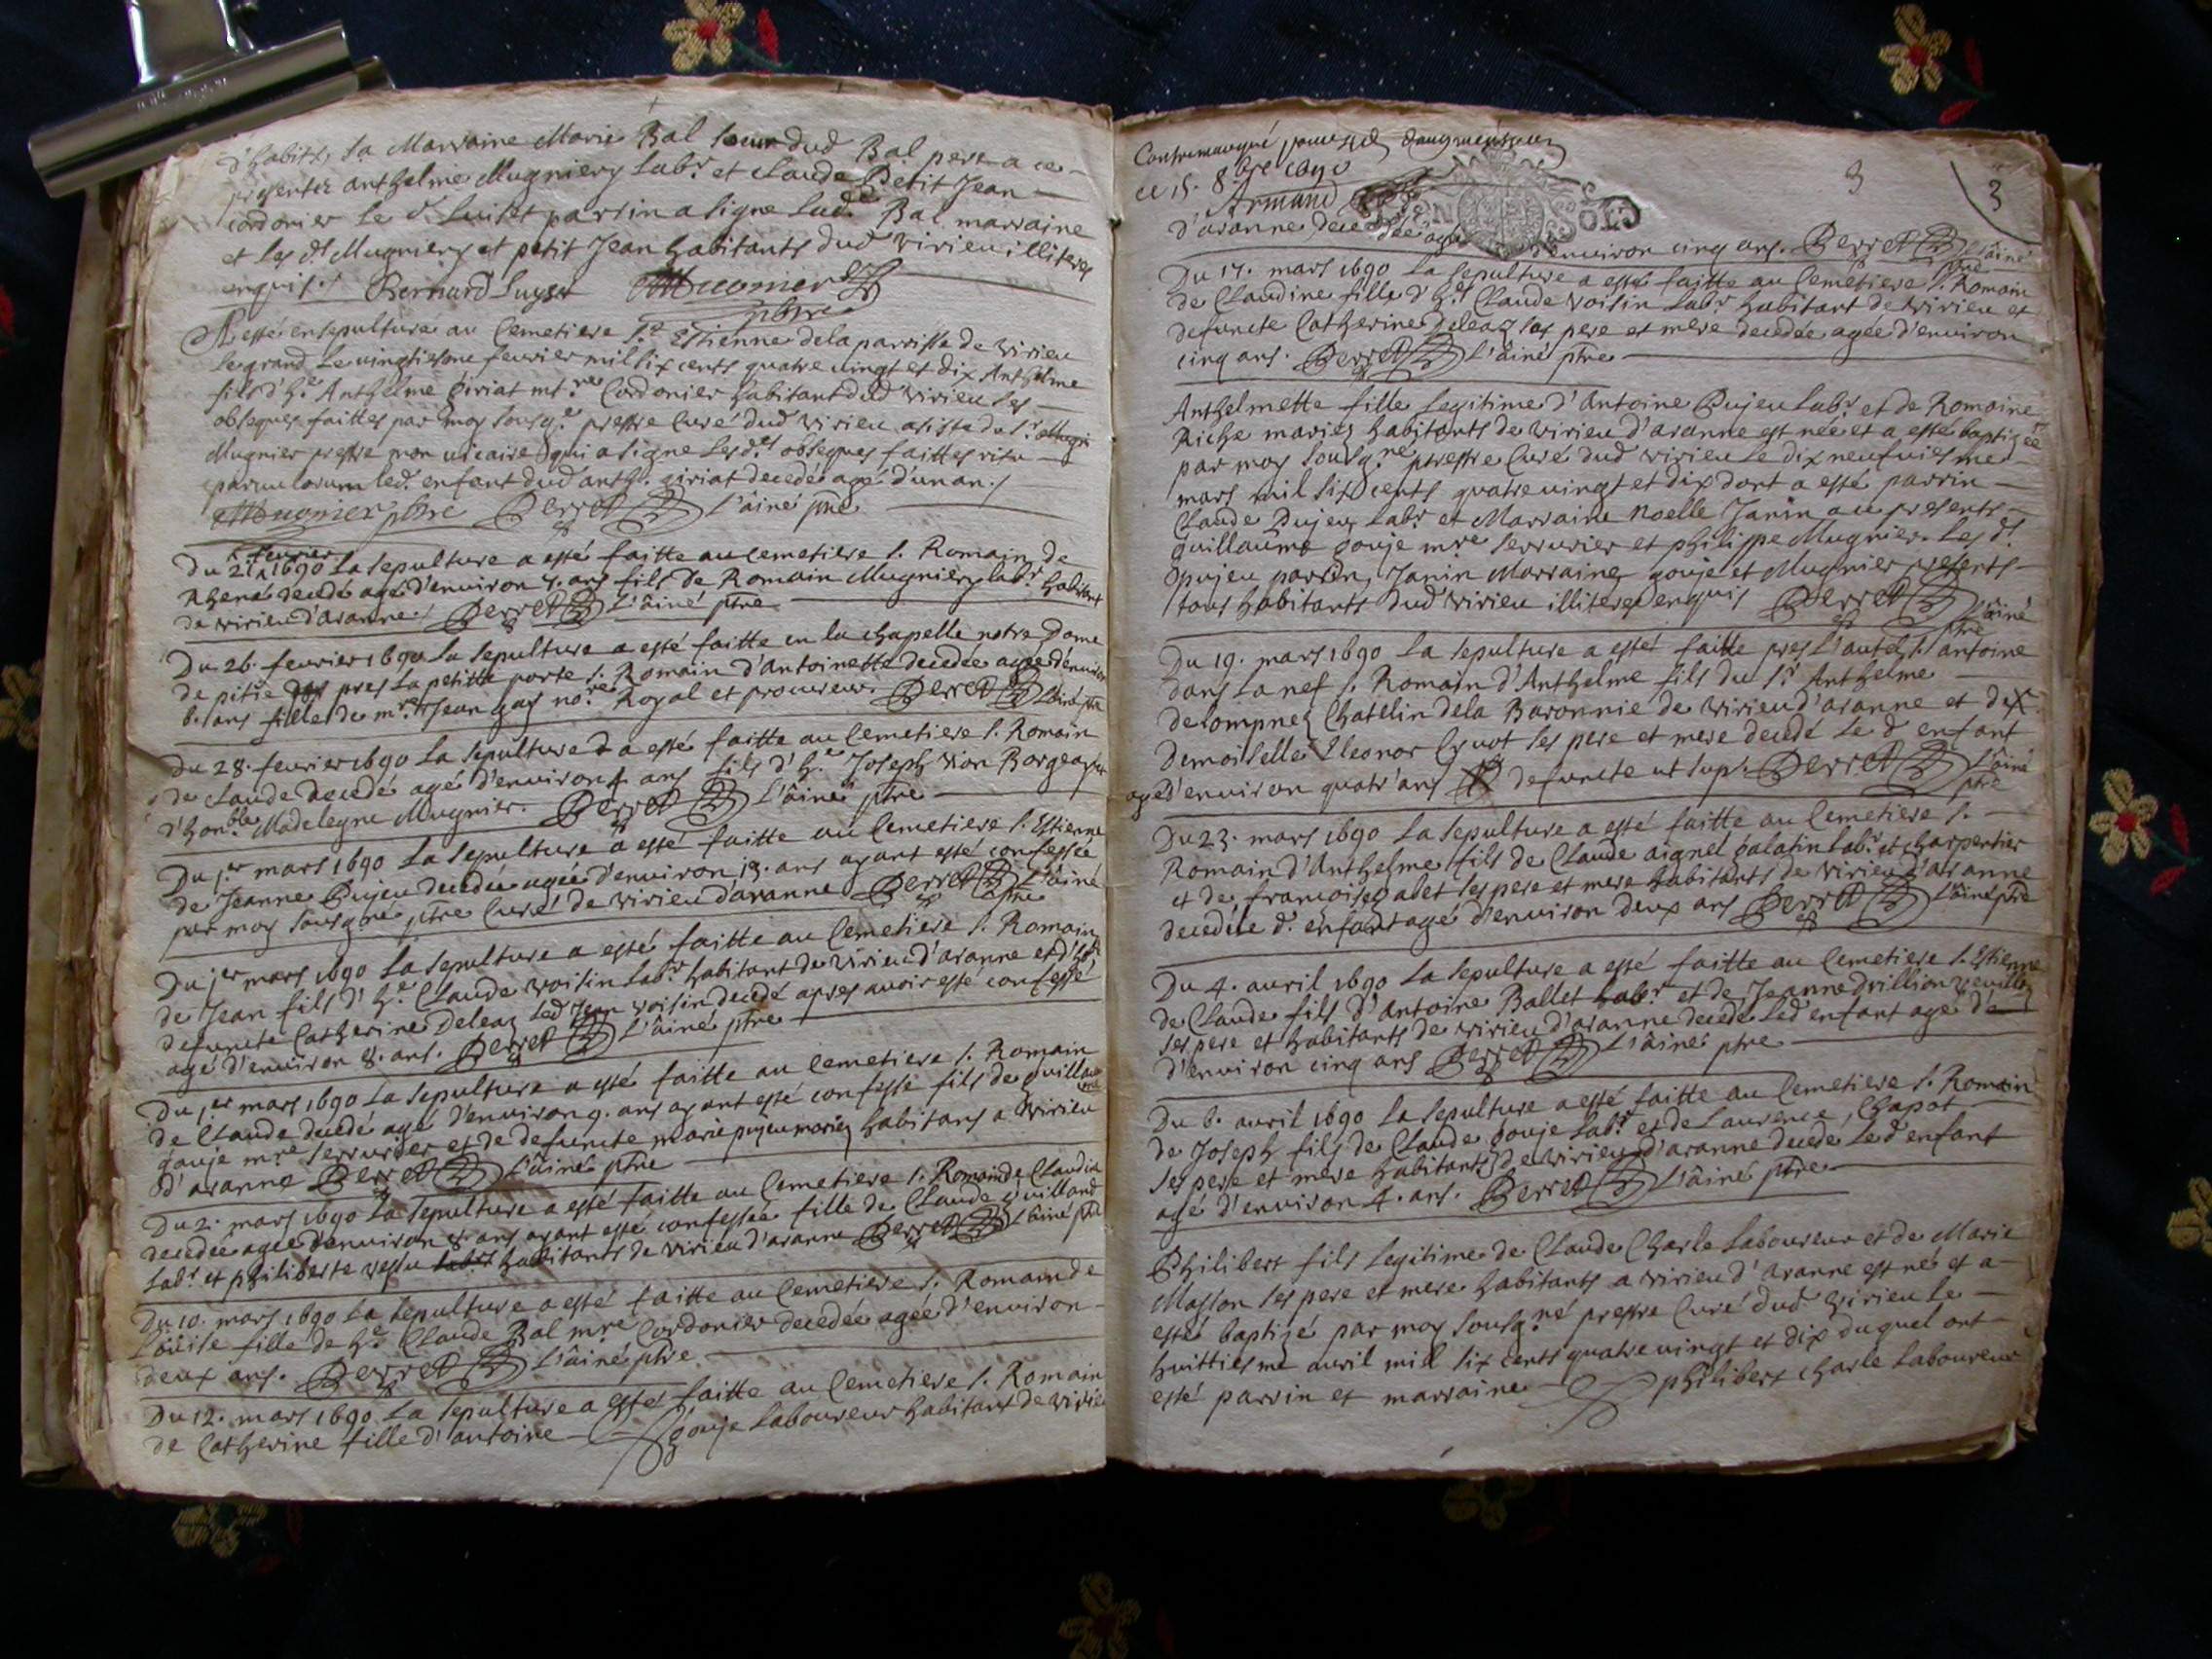 d'habits, la Marraine Marie Bal soeur dud Bal pere a ce
presentz anthelme Mugniery labr. et Claude Petit Jean
cordonier le d. parrin a signe lad. Bal marraine
et les ds Mugniery et petit Jean habitants dud virieu illiteres
enquis.
A esté ensepulturé au Cemetiere St. Estienne de la parroisse de virieu
le grand le vingtiesme feurier mil six cents quatre vingt et dix Anthelme
fils d'he. Anthelme Giriat mtre Cordonier habitant dud virieu les
obseques faittes par moy sousge. prestre Curé dud virieu asisté du sr.
Mugnier prestre mon vicaire qui a signe les des obseques faittes ritu
parvulorum led. enfant dud anth. giriat decedé agé d'un an.
Mugnier pbre Perret l'ainé ptre
Du 21 feurier 1690 la sepulture a esté faitte au cemetiere S. Romain de
decedé agé d'environ ans fils de Romain Mugniery labr. habitant
de virieu d'aranne. Perret l'ainé ptre
Du 26. feurier 1690 la sepulture a esté faitte en la chapelle notre Dame
de pitie pres la petitte porte S. Romain d'Antoinette decedée agée d'environ
6. ans fille de mre. Jean gay nore. Royal et procureur. Perret l'ainé ptre
Du 28. feurier 1690 la sepulture a esté faitte au Cemetiere S. Romain
de Claude decedé agé d'environ 4. ans fils d'he. Joseph vion
d'honble Madelegne Mugnier. Perret l'ainé ptre
Du 1er mars 1690 la sepulture a esté faitte au Cemetiere S. Estienne
de Jeanne Pujeu decedée agée d'environ 13. ans ayant esté confessée
par moy sousgne ptre Curé de virieu d'aranne Perret l'ainé ptre
Du 1er mars 1690 la sepulture a esté faitte au Cemetiere S. Romain
de Jean fils d'he. Claude voisin labr habitant de virieu d'aranne et d'
defuncte Catherine Deleaz led Jean voisin decedé apres auoir esté confessé
agé d'environ 8. ans. Perret l'ainé ptre
Du 1er mars 1690 la sepulture a esté faitte au Cemetiere S. Romain
de Claude decedé agé d'environ 9. ans ayant esté confessé fils de guillaume
gouje mre serrurier et de defuncte marie pujeu mariez habitans a virieu
d'aranne Perret l'ainé ptre
Du 2. mars 1690 la sepulture a esté faitte au Cemetiere S. Romain de Claudine
decedée agée d'environ 8. ans ayant esté confessée fille de Claude guilland
labr. et philiberte habitants de virieu d'aranne Perret l'ainé ptre
Du 10. mars 1690 la sepulture a esté faitte au Cemetiere S. Romain de
Louise fille de he. Claude Bal mre Cordonier decedée agée d'environ
deux ans. Perret l'ainé ptre
Du 12. mars 1690 la sepulture a esté faitte au Cemetiere S. Romain
de Catherine fille d'antoine gouje laboureur habitant de virieu
Contremarqué pour
ce 15. 8bre 1690
Armand
3
3
d'aranne decedée agée d'environ cinq ans. Perret l'ainé ptre
Du 17. mars 1690 la sepulture a esté faitte au Cemetiere S. Romain
de Claudine fille d'he. Claude voisin labr. habitant de virieu et
defuncte Catherine Deleaz ses pere et mere decedée agée d'environ
cinq ans. Perret l'ainé ptre
Anthelmette fille legitime d'Antoine Pujeu labr. et de Romaine
Riche mariez habitants de virieu d'aranne est née et a esté baptizée
par moy sousgné prestre Curé dud virieu le dix neufuiesme
mars mil six cents quatre vingt et dix dont a esté parrin
Claude Pujeu labr et Marraine Noelle Janin au presents
guillaume gouje mre serrurier et philippe Mugnier. Les ds
pujeu parrin, Janin Marraine, gouje et Mugnier presents
tous habitants dud virieu illiteres enquis Perret l'ainé ptre
Du 19. mars 1690 la sepulture a esté faitte pres l'autel S. antoine
dans la nef S. Romain d'Anthelme fils du sr Anthelme
delompnez Chatelin dela Baronnie de virieu d'aranne et de
demoiselle Eleonor Cruot ses pere et mere decedé le d enfant
agé d'environ quatr'ans defuncte ut sup. Perret l'ainé ptre
Du 23. mars 1690 la sepulture a esté faitte au Cemetiere S.
Romain d'Anthelme fils de Claude aignel galatin labr. et charpentier
et de francoise ses pere et mere habitants de virieu d'aranne
decedé le d. enfant agé d'environ deux ans Perret l'ainé ptre
Du 4. auril 1690 la sepulture a esté faitte au Cemetiere S. Estienne
de Claude fils d'Antoine Ballet labr. et de Jeanne
ses pere et habitants de virieu d'aranne decedé led enfant agé de
d'environ cinq ans Perret l'ainé ptre
Du 6. auril 1690 la sepulture a esté faitte au Cemetiere S. Romain
de Joseph fils de Claude gouje labr. et de Laurence Chapot
ses pere et mere habitants de virieu d'aranne decedé le d enfant
agé d'environ 4. ans. Perret l'ainé ptre
Philibert fils legitime de Claude Charle laboureur et de Marie
Masson ses pere et mere habitants a virieu d'aranne est né et a
esté baptizé par moy sousgné prestre Curé dud virieu le
huittiesme auril mil six cents quatre vingt et dix duquel ont
esté parrin et marraine philibert Charle laboureur